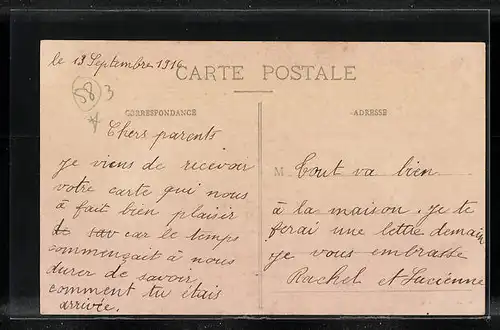 le 13 Septembre 1914
CARTE POSTALE
583
CORRESPONDANCE
ADRESSE
Chers parents
Je viens de recevoir
votre carte qui nous
à fait bien plaisir
car le temps
commençait à nous
durer de savoir
comment tu étais
arrivée.
M. Tout va bien
à la maison. Je te
ferai une lettre demain
je vous embrasse
Rachel et Lucienne